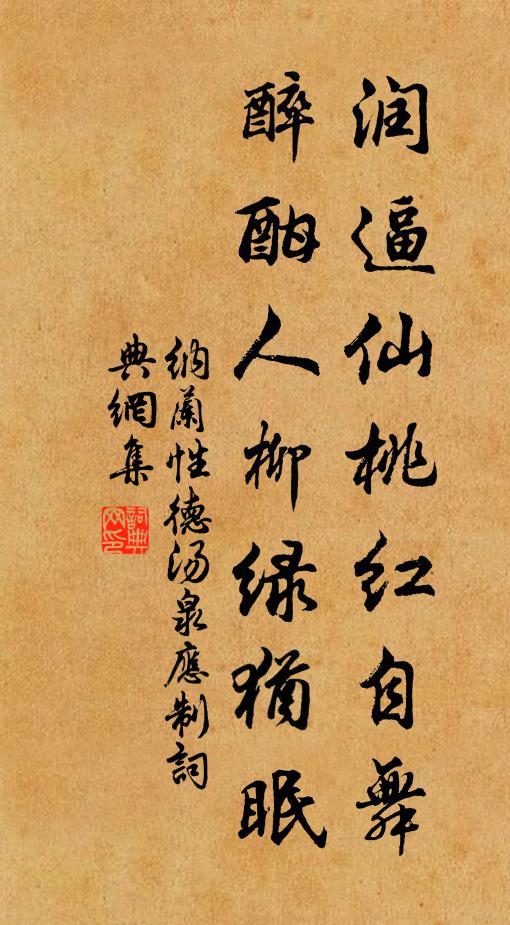 润逼仙桃红自舞
醉酣人柳绿犹眠
纳兰性德汤泉應制詞
典網集
詞典网印